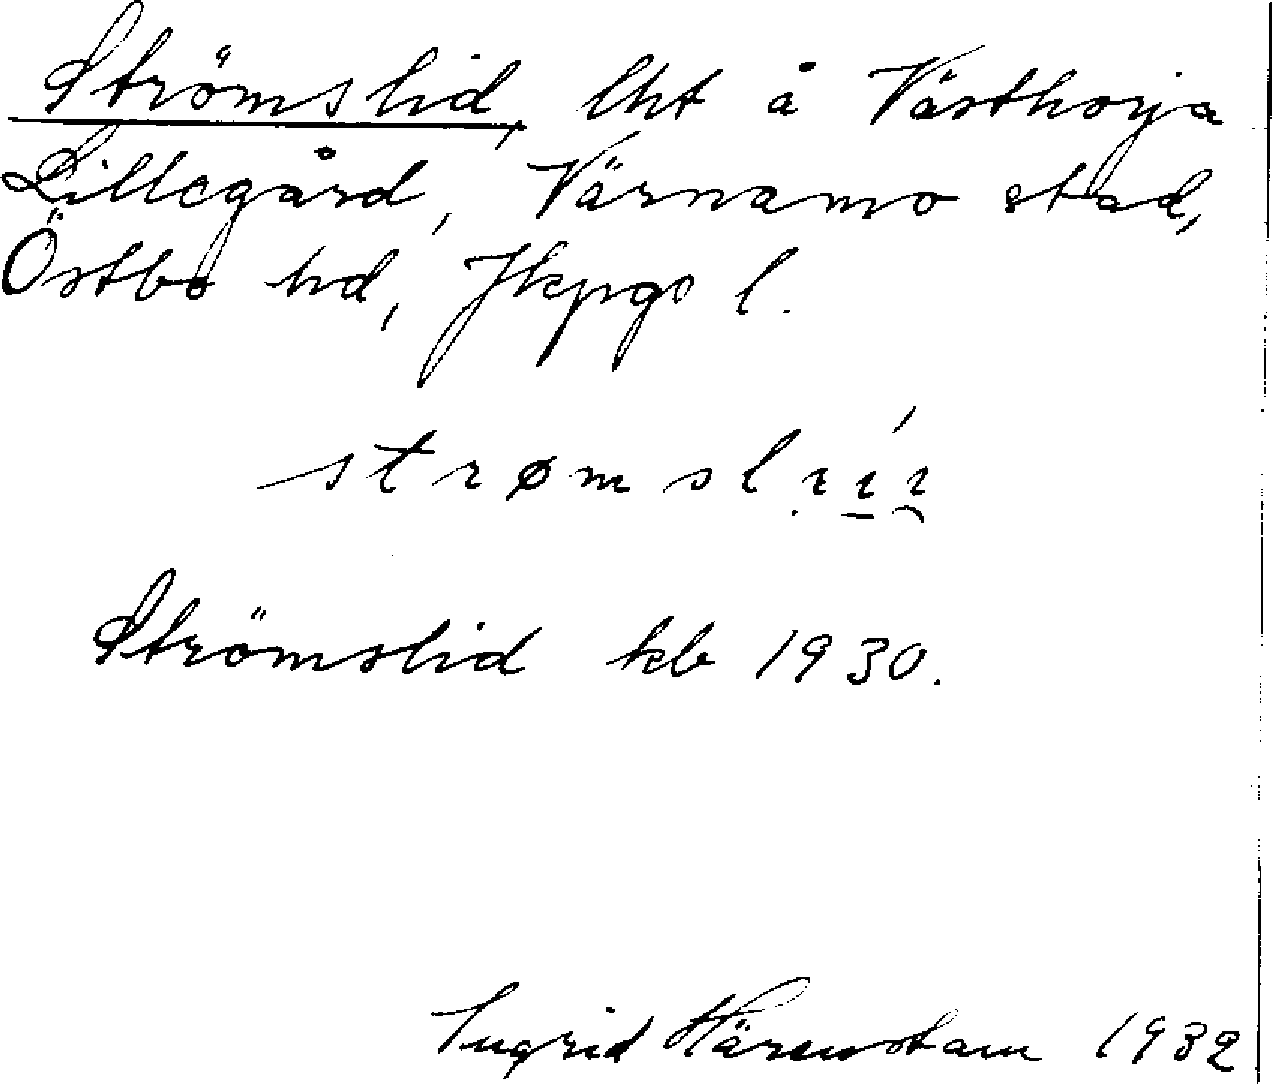 Strömslid, lht å Västhorja
Lillegård, Värnamo stad,
Östbo hd, Jkpgs l.
strømslıı́ı
Strömslid kb 1930.
Ingrid Härenstam 1932